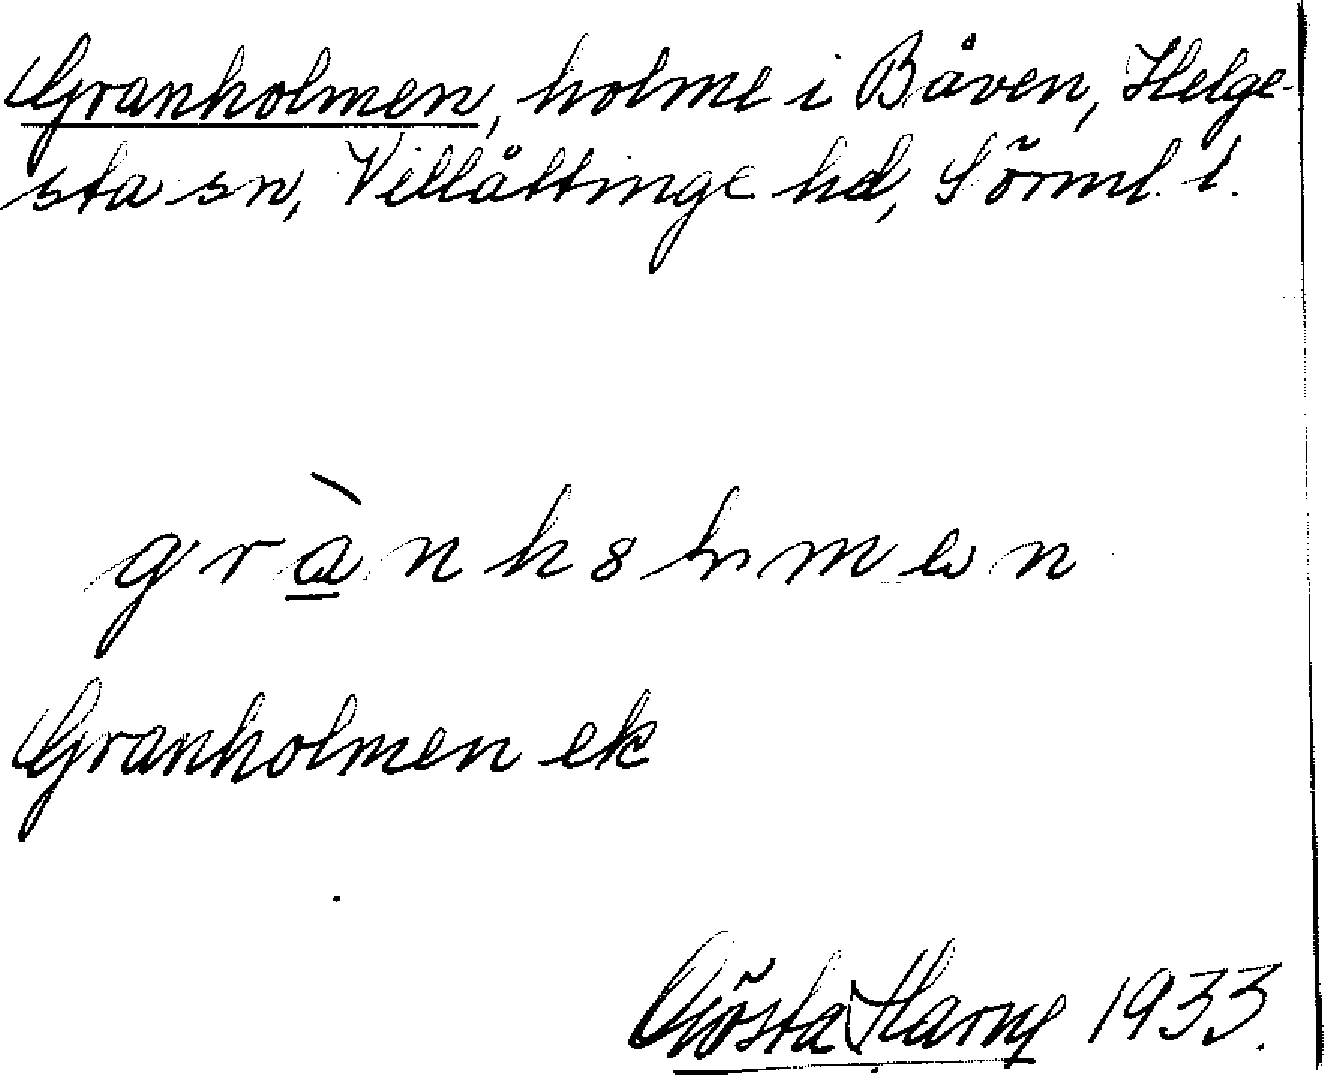 Granholmen, holme i Båven, Helge-
sta sn, Villåttinge hd, Sörml. l.
Granholmen ek
Gösta Harng 1933.